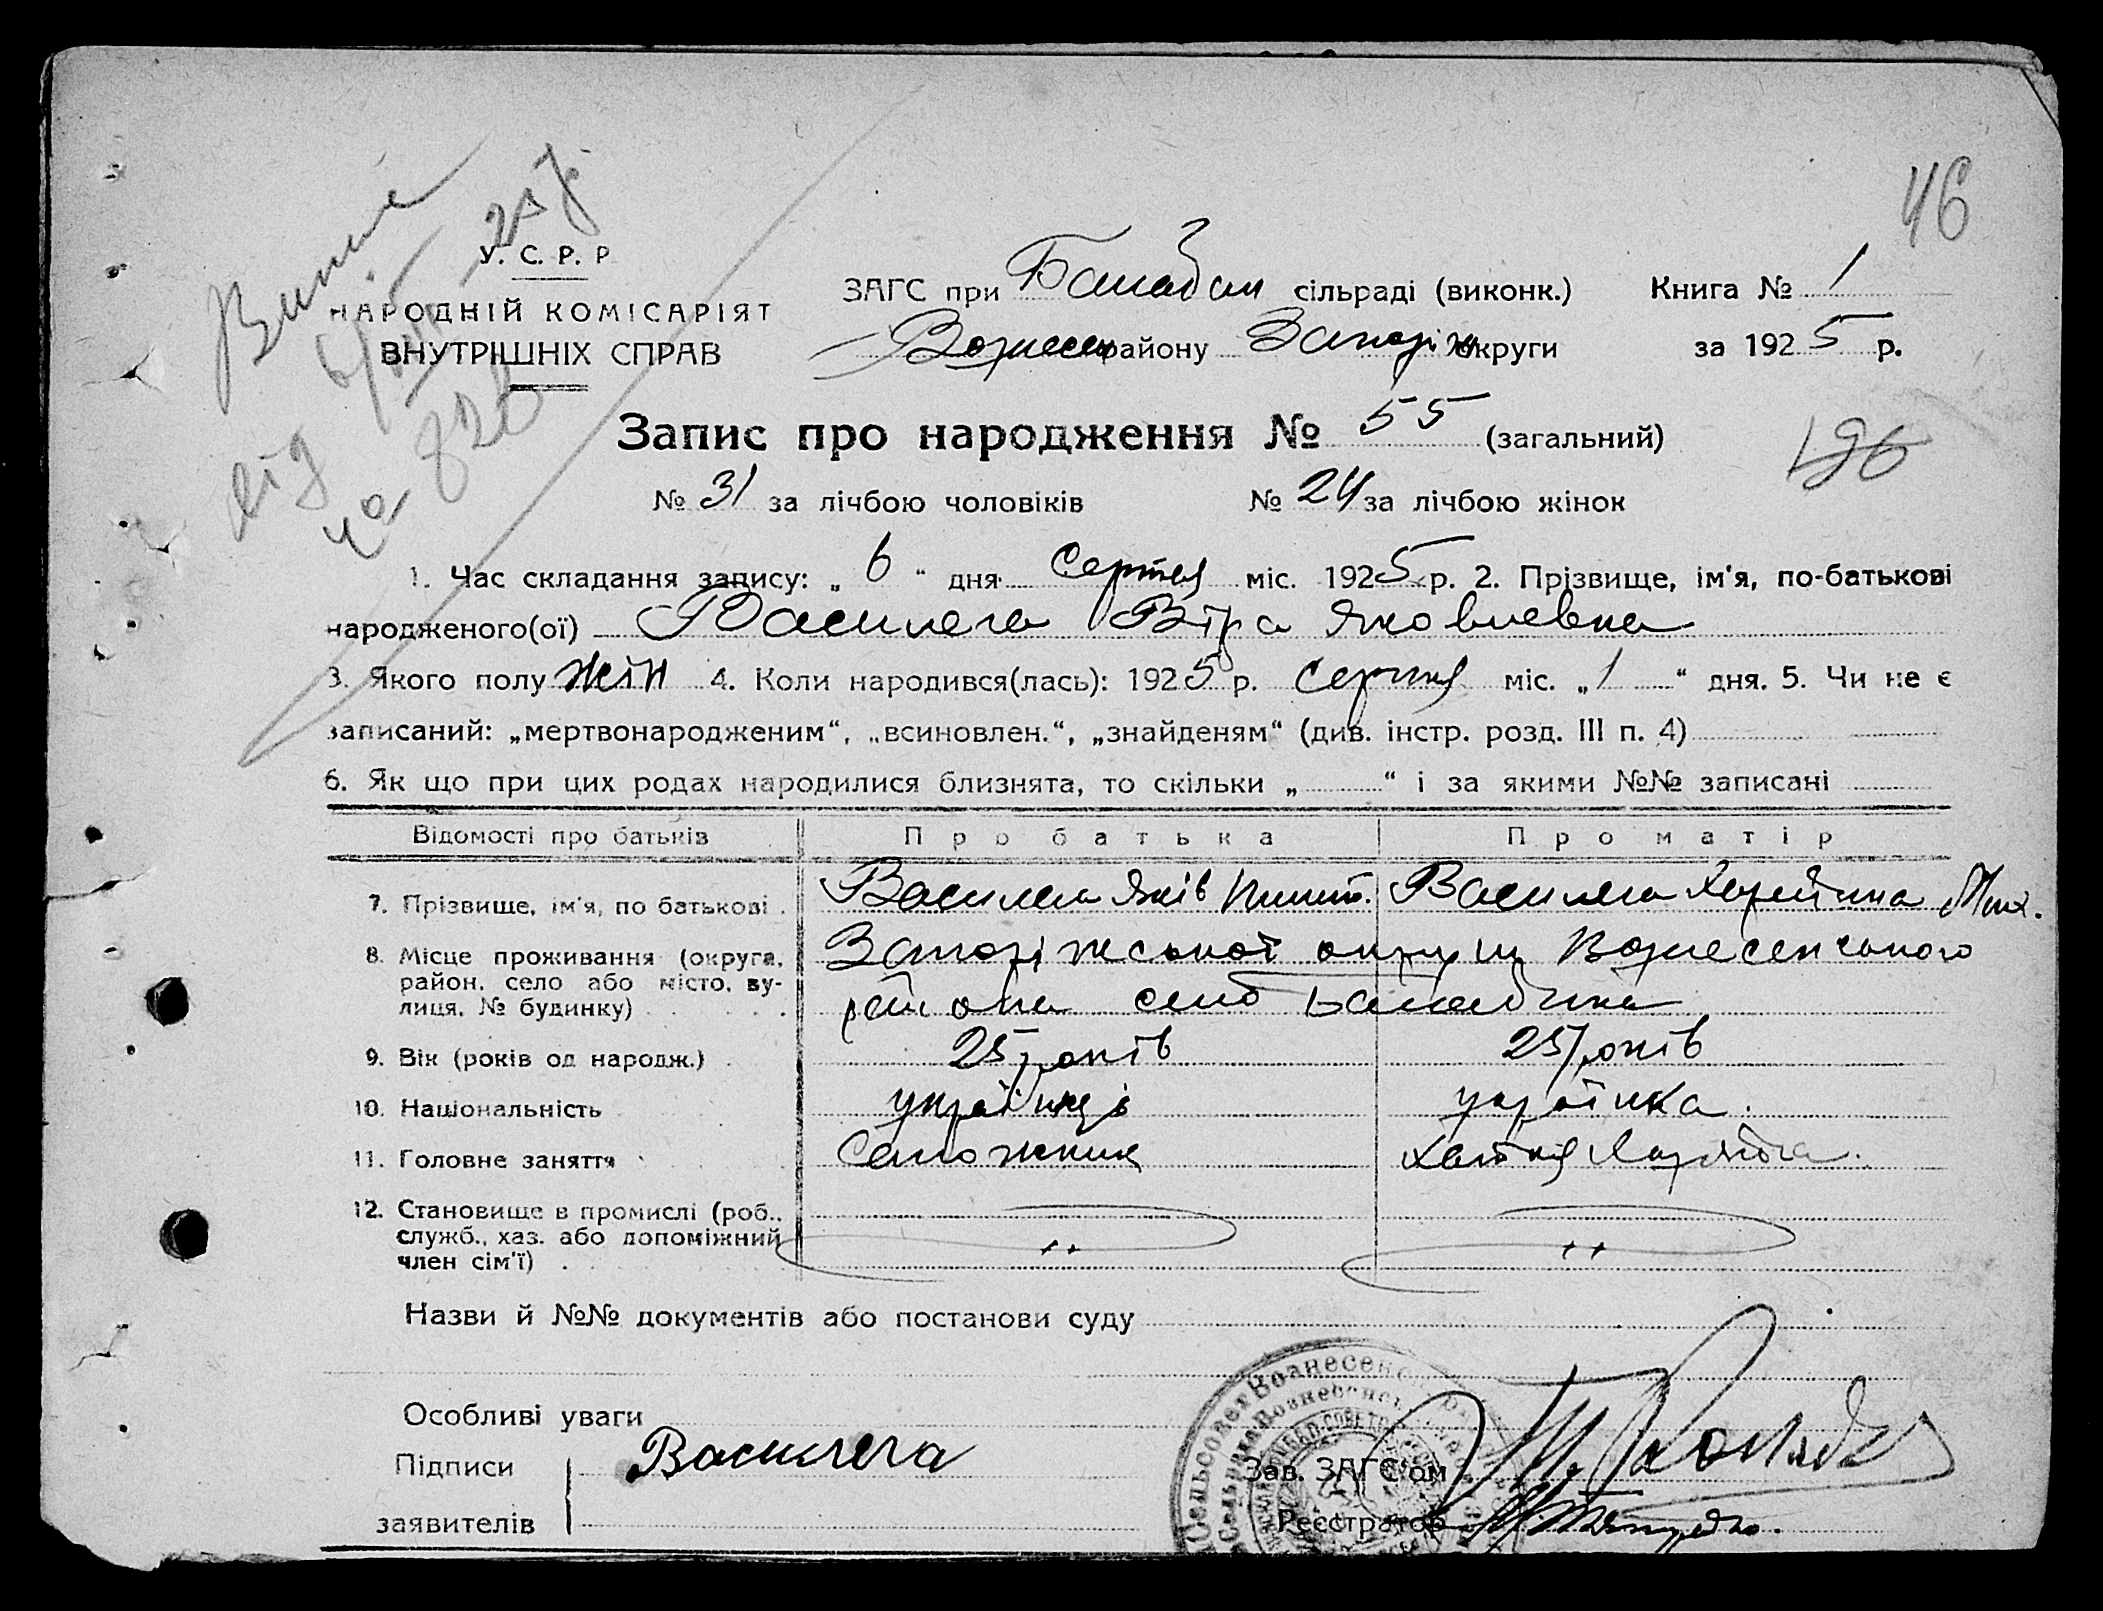 46
У. С. Р. Р
НАРОДНІЙ КОМІСАРІЯТ
ВНУТРІШНІХ СПРАВ
ЗАГС при Балабан сільраді (виконк.) Книга № 1
Вознесен району Запоріж округи за 1925 р.
Запис про народження № 55 (загальний)
196
№ 31 за лічбою чоловіків № 24 за лічбою жінок
1. Час складання запису: „ 6 “ дня Серпня міс. 1925 р. 2. Прізвище, ім'я, по-батькові
народженого(ої) Василега Віра Яковлевна
3. Якого полу жін 4. Коли народився(лась): 1925 р. Серпня міс. „ 1 “ дня. 5. Чи не є
записаний: „мертвонародженим“, „всиновлен.“, „знайденям“ (див. інстр. розд. III п. 4)
6. Як що при цих родах народилися близнята, то скільки „ “ і за якими №№ записані
Відомості про батьків Про батька Про матір
7. Прізвище, ім'я, по батькові Василега Яків Василега Мих.
8. Місце проживання (округа, Запоріжської округи Вознесенського
район, село або місто, ву- района село Балабина
лиця, № будинку)
9. Вік (років од народж.) 25 років 25 років
10. Національність українець українка.
11. Головне заняття Сапожник Хатня
12. Становище в промислі (роб.,
служб., хаз. або допоміжний
член сім'ї)
Назви й №№ документів або постанови суду
Особливі уваги
Підписи Василега Зав. ЗАГС'ом
заявителів Реєстратор